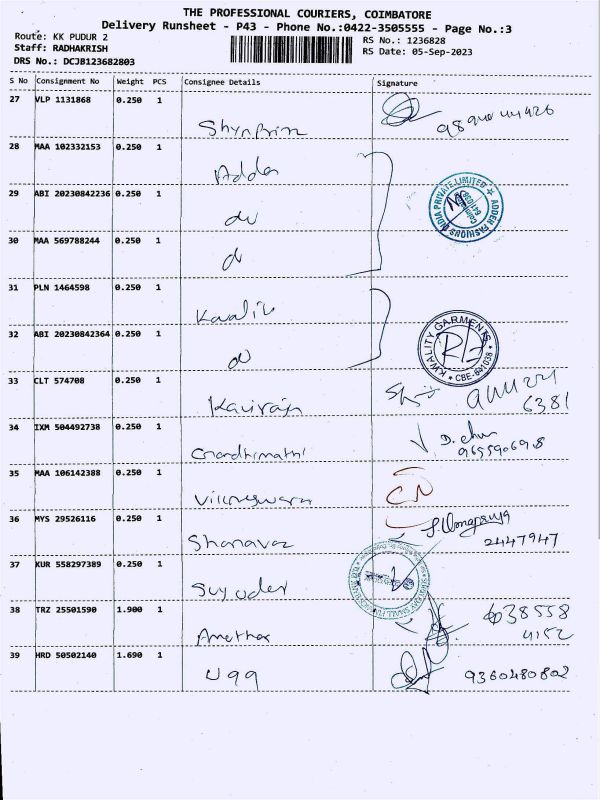 THE PROFESSIONAL COURIERS, COIMBATORE
Delivery Runsheet - P43 - Phone No.:0422-3505555 - Page No.:3
Route: KK PUDUR 2
RS No.: 1236828
Staff: RADHAKRISH
RS Date: 05-Sep-2023
DRS No.: DCJB123682803
S No Consignment No Weight PCS Consignee Details Signature
27 VLP 1131868 0.250 1
28 MAA 102332153 0.250 1
Adder
ADDER FASHIONS INDIA PRIVATE LIMITED
29 ABI 20230842236 0.250 1
do
30 MAA 569788244 0.250 1
31 PLN 1464598 0.250 1
KWALITY GARMENTS
CBE-641038
32 ABI 20230842364 0.250 1
do
33 CLT 574708 0.250 1
Kaviraja
6381
34 IXM 504492738 0.250 1
Chandhimathi
35 MAA 106142388 0.250 1
CN
36 MYS 29526116 0.250 1
Shanavaz
2447947
37 KUR 558297389 0.250 1
38 TRZ 25501590 1.900 1
638558
4152
39 HRD 50502140 1.690 1
9360480802